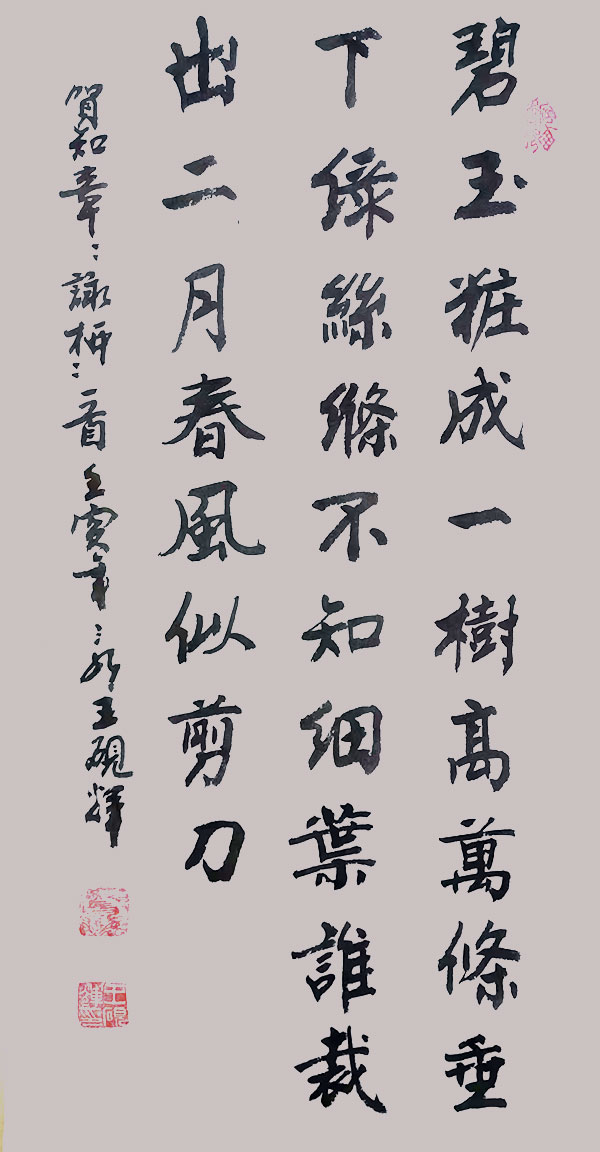 碧玉粧成一樹高萬條垂
下綠絲絛不知細葉誰裁
出二月春風似剪刀
賀知章：詠柳：一首壬寅年：王硯輝